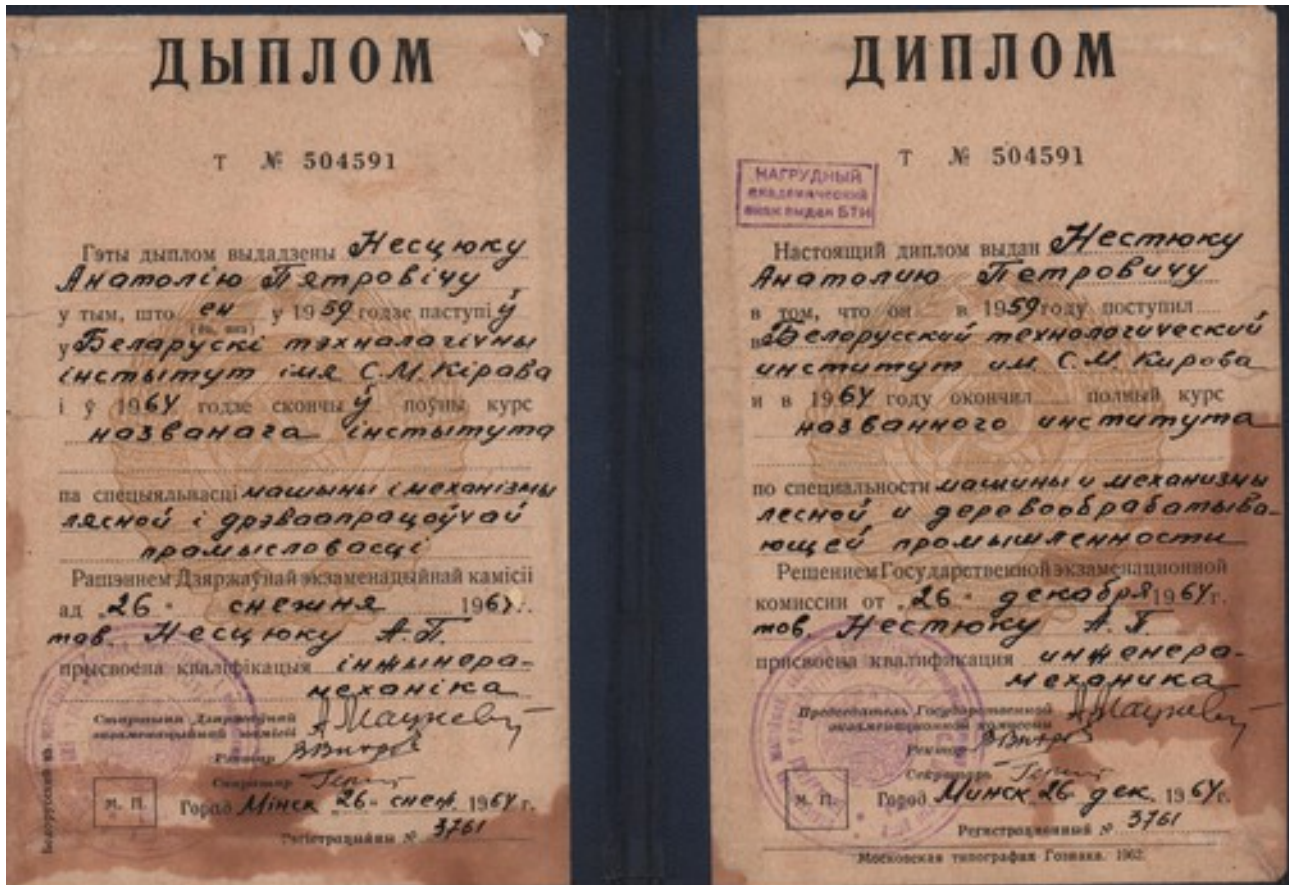 ДЫПЛОМ
Т № 504591
Гэты дыплом выдадзены Несцюку
Анатолію Пятровічу
у тым, што ён у 1959 годзе паступіў
(ён, яна)
у Беларускі тэхналагічны
інстытут імя С.М. Кірава
і ў 1964 годзе скончыў поўны курс
названага інстытута
па спецыяльнасці машыны і механізмы
лясной і дрэваапрацоўчай
прамысловасці
Рашэннем Дзяржаўнай экзаменацыйнай камісіі
ад „26" снежня 1964 г.
тав. Несцюку А.П.
прысвоена кваліфікацыя інжынера-
механіка
Старшыня Дзяржаўнай
экзаменацыйнай камісіі
Рэктар
Сакратар
М. П.
Горад Мінск 26 снеж. 1964 г.
Рэгістрацыйны № 3761
Белорусский яз.
ДИПЛОМ
Т № 504591
НАГРУДНЫЙ
академический
знак выдан БТИ
Настоящий диплом выдан Нестюку
Анатолию Петровичу
в том, что он в 1959 году поступил
в Белорусский технологический
институт им. С.М. Кирова
и в 1964 году окончил полный курс
названного института
по специальности машины и механизмы
лесной и деревообрабатыва-
ющей промышленности
Решением Государственной экзаменационной
комиссии от „26" декабря 1964 г.
тов. Нестюку А.П.
присвоена квалификация инженера-
механика
Председатель Государственной
экзаменационной комиссии
Ректор
Секретарь
М. П.
Город Минск 26 дек. 1964 г.
Регистрационный № 3761
Московская типография Гознака. 1962.